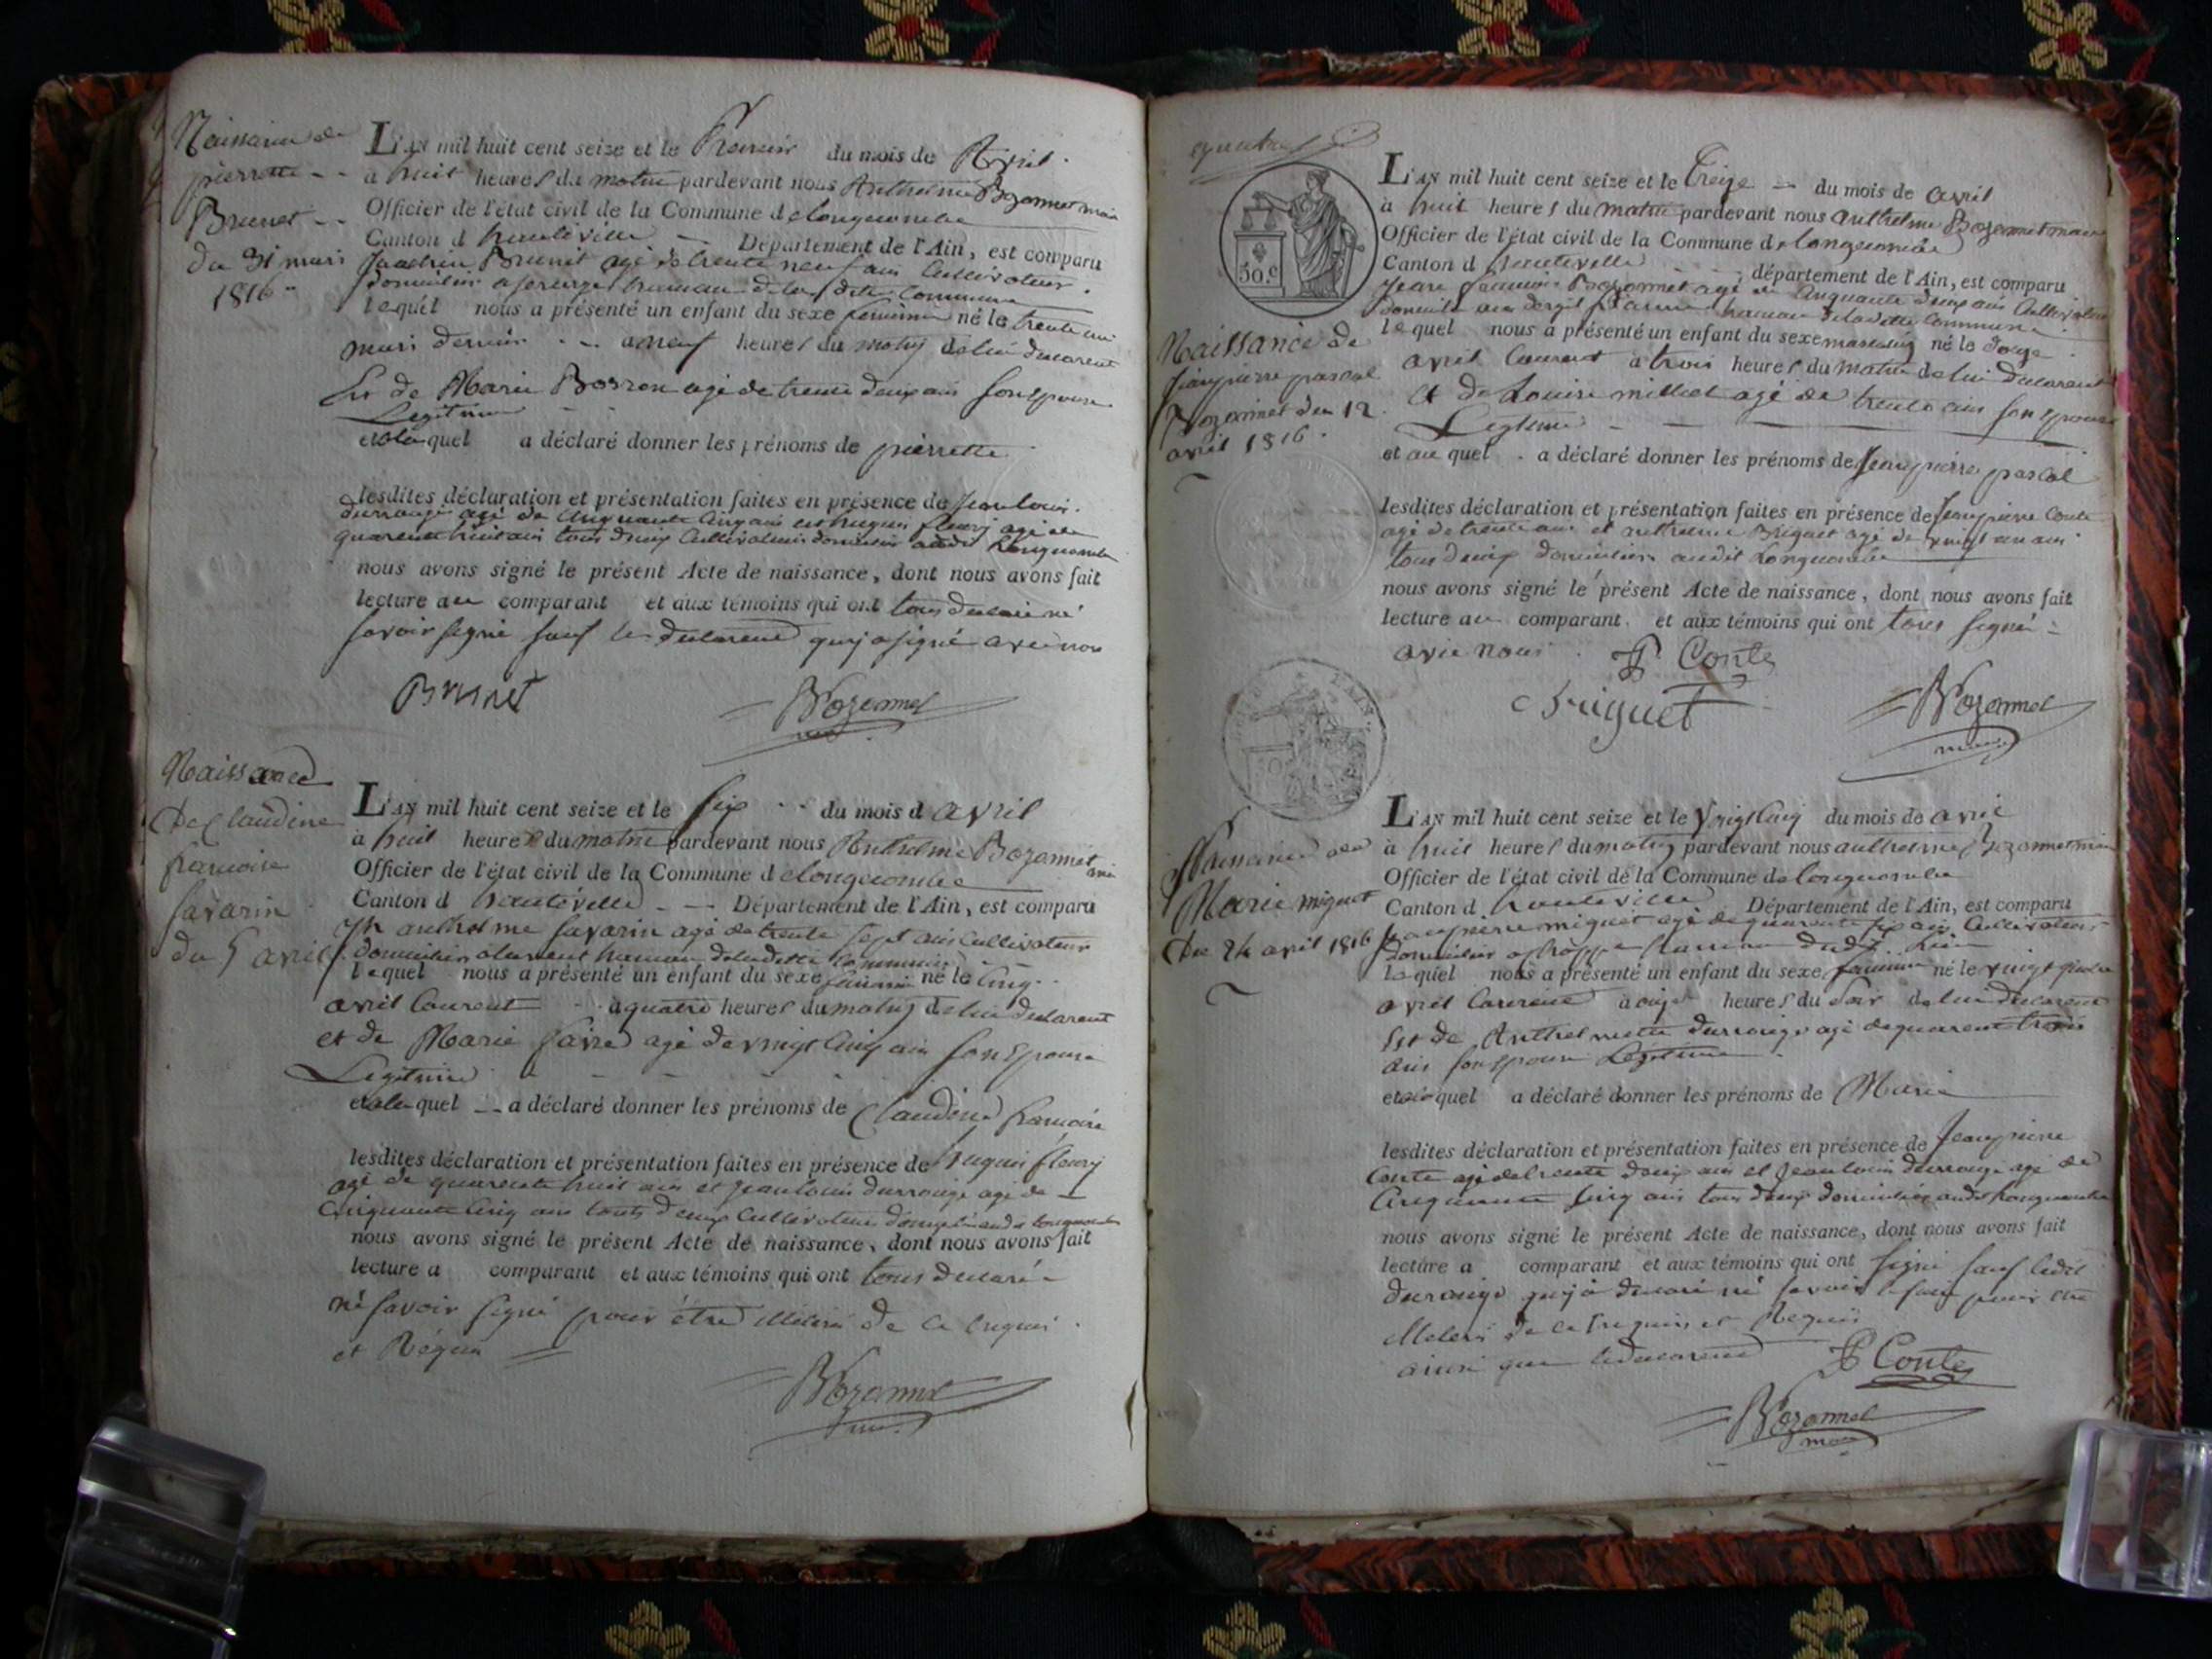 Naissance de
pierrette
Brunet
du 31 mars
1816
L'AN mil huit cent seize et le Premier du mois de Avril
à huit heures du matin pardevant nous Anthelme Bozonnet maire
Officier de l'état civil de la Commune de longecombe
Canton d hauteville Département de l'Ain, est comparu
Brunet agé de trente neuf ans Cultivateur
domicilié hameau de la dite Commune
lequel nous a présenté un enfant du sexe feminin né le trente un
mars dernier a neuf heures du matin de lui declarent
Et de Marie Borron agé de trente deux ans son Epouse
Legitime
et à la quel a déclaré donner les prénoms de pierrette
lesdites déclaration et présentation faites en présence de Jean louis
durrouge agé de Cinquante Cinq ans et huguis fleury agé de
quarente huit ans tous deux Cultivateurs domiciliés audit Longecombe
nous avons signé le présent Acte de naissance, dont nous avons fait
lecture au comparant et aux témoins qui ont tous declaré né
savoir signé sauf le declarent quj a signé avec nous
Brunet
Bozonnet
maire
Naissance
De Claudine
francoise
savarin
du 5 avril
L'AN mil huit cent seize et le six du mois d avril
à huit heures du matin pardevant nous Anthelme Bozonnet maire
Officier de l'état civil de la Commune d longecombe
Canton d hauteville Département de l'Ain, est comparu
anthelme savarin agé de trente sept ans Cultivateur
domicilié hameau de ladite Commune
lequel nous a présenté un enfant du sexe feminin né le Cinq
avril Courent a quatre heures du matin de lui declarent
et de Marie favre agé de vingt Cinq ans son Epouse
Legitime
et à la quel a déclaré donner les prénoms de Claudine francoise
lesdites déclaration et présentation faites en présence de huguis fleury
agé de quarente huit ans et Jean louis durrouge agé de
Cinquante Cinq ans touts deux Cultivateurs domiciliés audit longecombe
nous avons signé le présent Acte de naissance, dont nous avons fait
lecture a comparant et aux témoins qui ont tous declaré
né savoir signé pour être de ce
et Réquis
Bozonnet
maire
30.c
Naissance de
Jean pierre pascal
Bozonnet du 12
avril 1816
L'AN mil huit cent seize et le treize du mois de avril
à huit heures du matin pardevant nous anthelme Bozonnet maire
Officier de l'état civil de la Commune de longecombe
Canton d hauteville département de l'Ain, est comparu
Jean francois Bozonnet agé de Cinquante deux ans Cultivateur
domicilié hameau de la ditte Commune
lequel nous a présenté un enfant du sexe masculin né le douze
avril Courent à trois heures du matin de lui declarent
et de Louise milliet agé de trente ans son epouse
Legitime
et au quel a déclaré donner les prénoms de Jean pierre pascal
lesdites déclaration et présentation faites en présence de Jean pierre Conte
agé de trente ans et anthelme Briguet agé de vingt un ans
tous deux domiciliés audit Longecombe
nous avons signé le présent Acte de naissance, dont nous avons fait
lecture au comparant et aux témoins qui ont tous signé
avec nous
JP Conte
Briguet
Bozonnet
maire
Naissance de
Marie miguet
Du 24 avril 1816
L'AN mil huit cent seize et le vingt Cinq du mois de avril
à huit heures du matin pardevant nous anthelme Bozonnet maire
Officier de l'état civil de la Commune de longecombe
Canton d hauteville Département de l'Ain, est comparu
Jean pierre miguet agé de quarente six ans Cultivateur
domicilié hameau dudit Lieu
lequel nous a présenté un enfant du sexe feminin né le vingt quatre
avril Courent à onze heures du soir de lui declarent
Et de Anthelmette durrouge agé de quarent trois
ans son epouse Legitime
et à la quel a déclaré donner les prénoms de Marie
lesdites déclaration et présentation faites en présence de Jean pierre
Conte agé de trente deux ans et Jean louis durrouge agé de
Cinquante Cinq ans tous deux domiciliés audit Longecombe
nous avons signé le présent Acte de naissance, dont nous avons fait
lecture a comparant et aux témoins qui ont signé sauf ledit
durouge quj a declaré né savoir le faire pour être
de ce et Requis
ainsi que le declarent
JP Conte
Bozonnet
maire